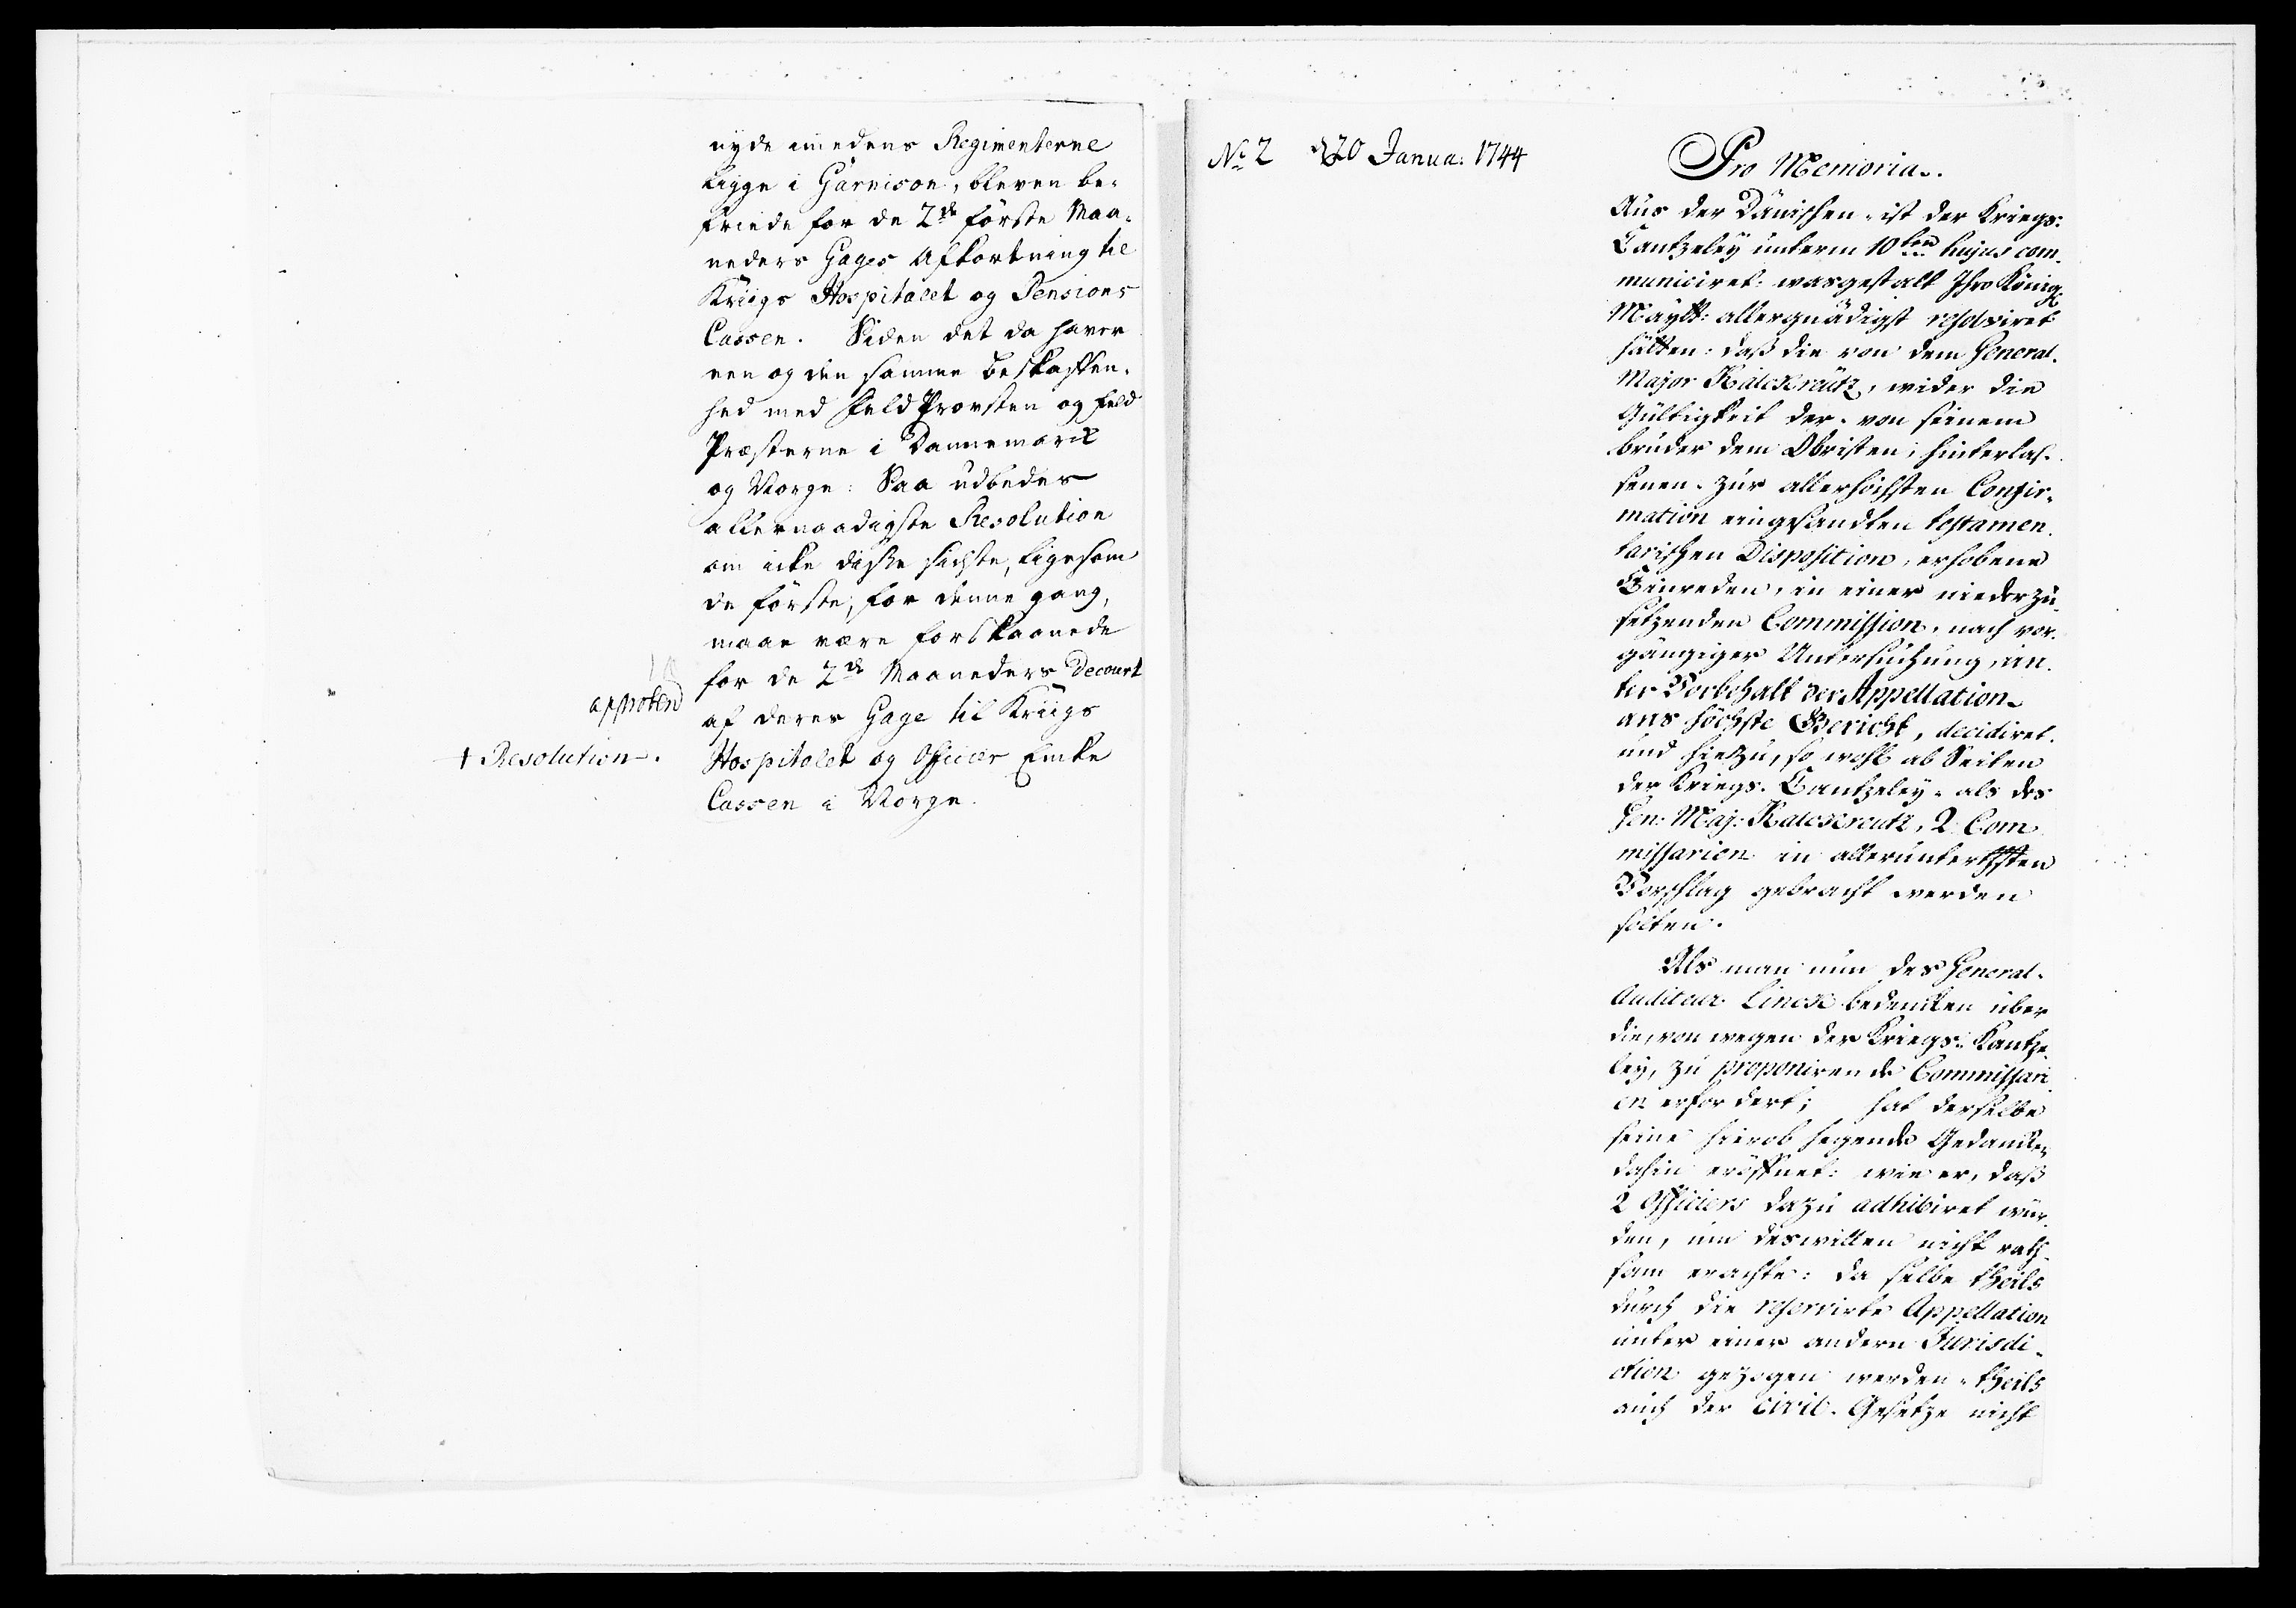 nyde imedens Regimenterne
ligge i Garnison, bleven be-
friede for de 2de første Maa-
neders Gages Afkortning til
Kriigs Hospitalet og Pensions
Cassen. Siden det da haver
een og den samme beskaffen-
hed med Feld Provsten og Feld
Præsterne i Dannemarck
og Norge: Saa udbedes
allernaadigste Resolution
om icke disse sidste, ligesom
de første, for denne gang,
maae være forskaanede
for de 2de Maaneders Decourt
af deres Gage til Kriigs
Hospitalet og Officier Encke
Cassen i Norge.
approbered
+ Resolution.
No 2 d 20 Janua: 1744
Pro Memoria.
Aus der Dänischen- ist der Kriegs-
Cantzeley unterm 10ten hujus com-
municiret: wasgestalt Ihro Königl:
Maytt: allergnädigst resolviret
hätten: daß die von dem General-
Major Kalckreutz, wider die
Gültigkeit der- von seinem
bruder dem Obristen, hinterlas-
senen- zur allerhöchsten Confir-
mation eingesandten testamen-
tarischen Disposition, erhobene
Einreden, in einer niederzu-
setzenden Commission, nach vor-
gängiger Untersuchung, un-
ter Vorbehalt der Appellation
ans höchste Gericht, decidiret-
und hiezu, so wohl ab Seiten
der Kriegs-Cantzeley- als des
Gen: Maj: Kalckreutz, 2 Com-
missarien in alleruntertgsten
Vorschlag gebracht werden
solten.
Als man nun des General-
Auditeur Linck bedencken über
die, von wegen der Kriegs-Cantze-
ley, zu proponirende Commissari-
en erfordert; hat derselbe
seine hierob hegende Gedancken
dahin eröffnet: wie er, daß
2 Officiers dazu adhibiret wür-
den, um deswillen nicht rath-
sam erachte: da selbe theils
durch die reservirte Appellation
unter einer andern Jurisdi-
ction gezogen werden- theils
auch der Civil-Gesetze nicht